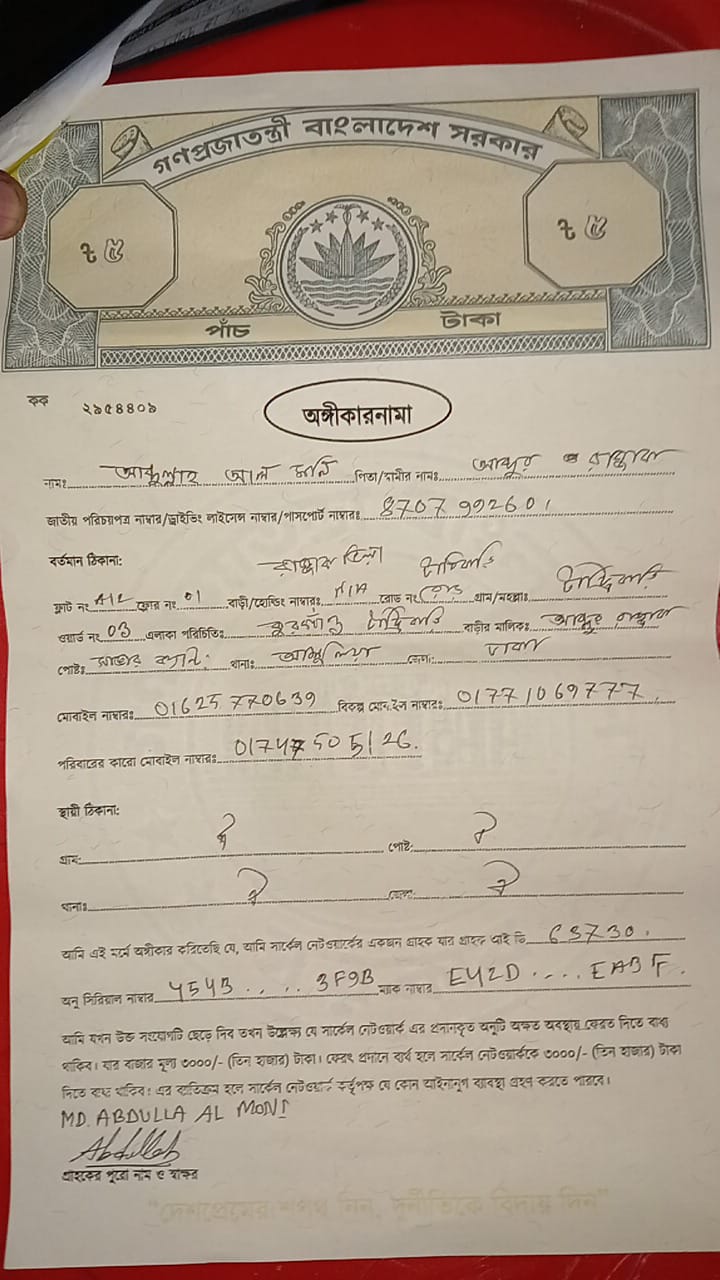 গণপ্রজাতন্ত্রী বাংলাদেশ সরকার
৳ ৫ ৳ ৫
পাঁচ টাকা
কক ২৯৫৪৪০৯
অঙ্গীকারনামা
নামঃ আব্দুল্লাহ আল মনি পিতা/স্বামীর নামঃ আব্দুর
জাতীয় পরিচয়পত্র নাম্বার/ড্রাইভিং লাইসেন্স নাম্বার/পাসপোর্ট নাম্বারঃ 8707992601
বর্তমান ঠিকানা:
ফ্লাট নং A12 ফ্লোর নং 01 বাড়ী/হোল্ডিং নাম্বারঃ N/A রোড নং গ্রাম/মহল্লাঃ
ওয়ার্ড নং 03 এলাকা পরিচিতিঃ বাড়ীর মালিকঃ আব্দুর
পোষ্টঃ থানাঃ আশুলিয়া জেলাঃ ঢাকা
মোবাইল নাম্বারঃ 01625770639 বিকল্প মোবাইল নাম্বারঃ 01771069777.
পরিবারের কারো মোবাইল নাম্বারঃ 01747505126.
স্থায়ী ঠিকানা:
গ্রাম: ঐ পোষ্ট: ঐ
থানাঃ ঐ জেলা: ঐ
আমি এই মর্মে অঙ্গীকার করিতেছি যে, আমি সার্কেল নেটওয়ার্কের একজন গ্রাহক যার গ্রাহক আই ডি 63730.
অনু সিরিয়াল নাম্বার 4543.... 3F9B ম্যাক নাম্বার E42D.... EABF.
আমি যখন উক্ত সংযোগটি ছেড়ে দিব তখন উল্লেক্ষ্য যে সার্কেল নেটওয়ার্ক এর প্রদানকৃত অনুটি অক্ষত অবস্থায় ফেরত দিতে বাধ্য
থাকিব। যার বাজার মূল্য ৩০০০/- (তিন হাজার) টাকা। ফেরৎ প্রদানে ব্যর্থ হলে সার্কেল নেটওয়ার্ককে ৩০০০/- (তিন হাজার) টাকা
দিতে বাধ্য থাকিব। এর ব্যতিক্রম হলে সার্কেল নেটওয়ার্ক কর্তৃপক্ষ যে কোন আইনানুগ ব্যবস্থা গ্রহণ করতে পারবে।
MD. ABDULLA AL MONI
Abdullah
গ্রাহকের পুরো নাম ও স্বাক্ষর
"দেশপ্রেমের শপথ নিন, দুর্নীতিকে বিদায় দিন"